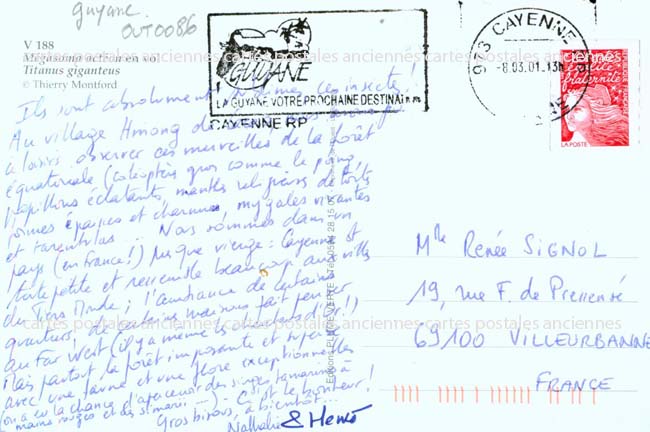 Guyane
OUT0086
V 188
Megasoma actéon en vol
Titanus giganteus
© Thierry Montford
GUYANE
LA GUYANE VOTRE PROCHAINE DESTINATION
CAYENNE RP
973 CAYENNE RP
-8.03.01.13h
liberté égalité fraternité
LA POSTE
Ils sont absolument ces insectes!
Au village Hmong de
à loisir observer ces merveilles de la forêt
équatoriale (coléoptères gros comme le poing,
papillons éclatants, mantes religieuses de toutes
formes épaisses et charnues, mygales vivantes
et tarentulas... Nous sommes dans un
pays (en France!) plus que vierge: Cayenne est
toute petite et ressemble beaucoup aux villes
du Tiers Monde; l'ambiance de certains
quartiers, de certaines maisons fait penser
au Far West (il y a même des chercheurs d'or!)
Mais partout la forêt imposante et superbe
avec une faune et une flore exceptionnelles
(on a eu la chance d'apercevoir des singes tamarins à
mains rouges et des saïmiri...) - C'est le bonheur!
Gros bisous, à bientôt...
Nathalie & Hervé
Mlle Renée SIGNOL
19, rue F. de Pressensé
69100 VILLEURBANNE
FRANCE
cartes postales anciennes cartes postales anciennes cartes postales anciennes